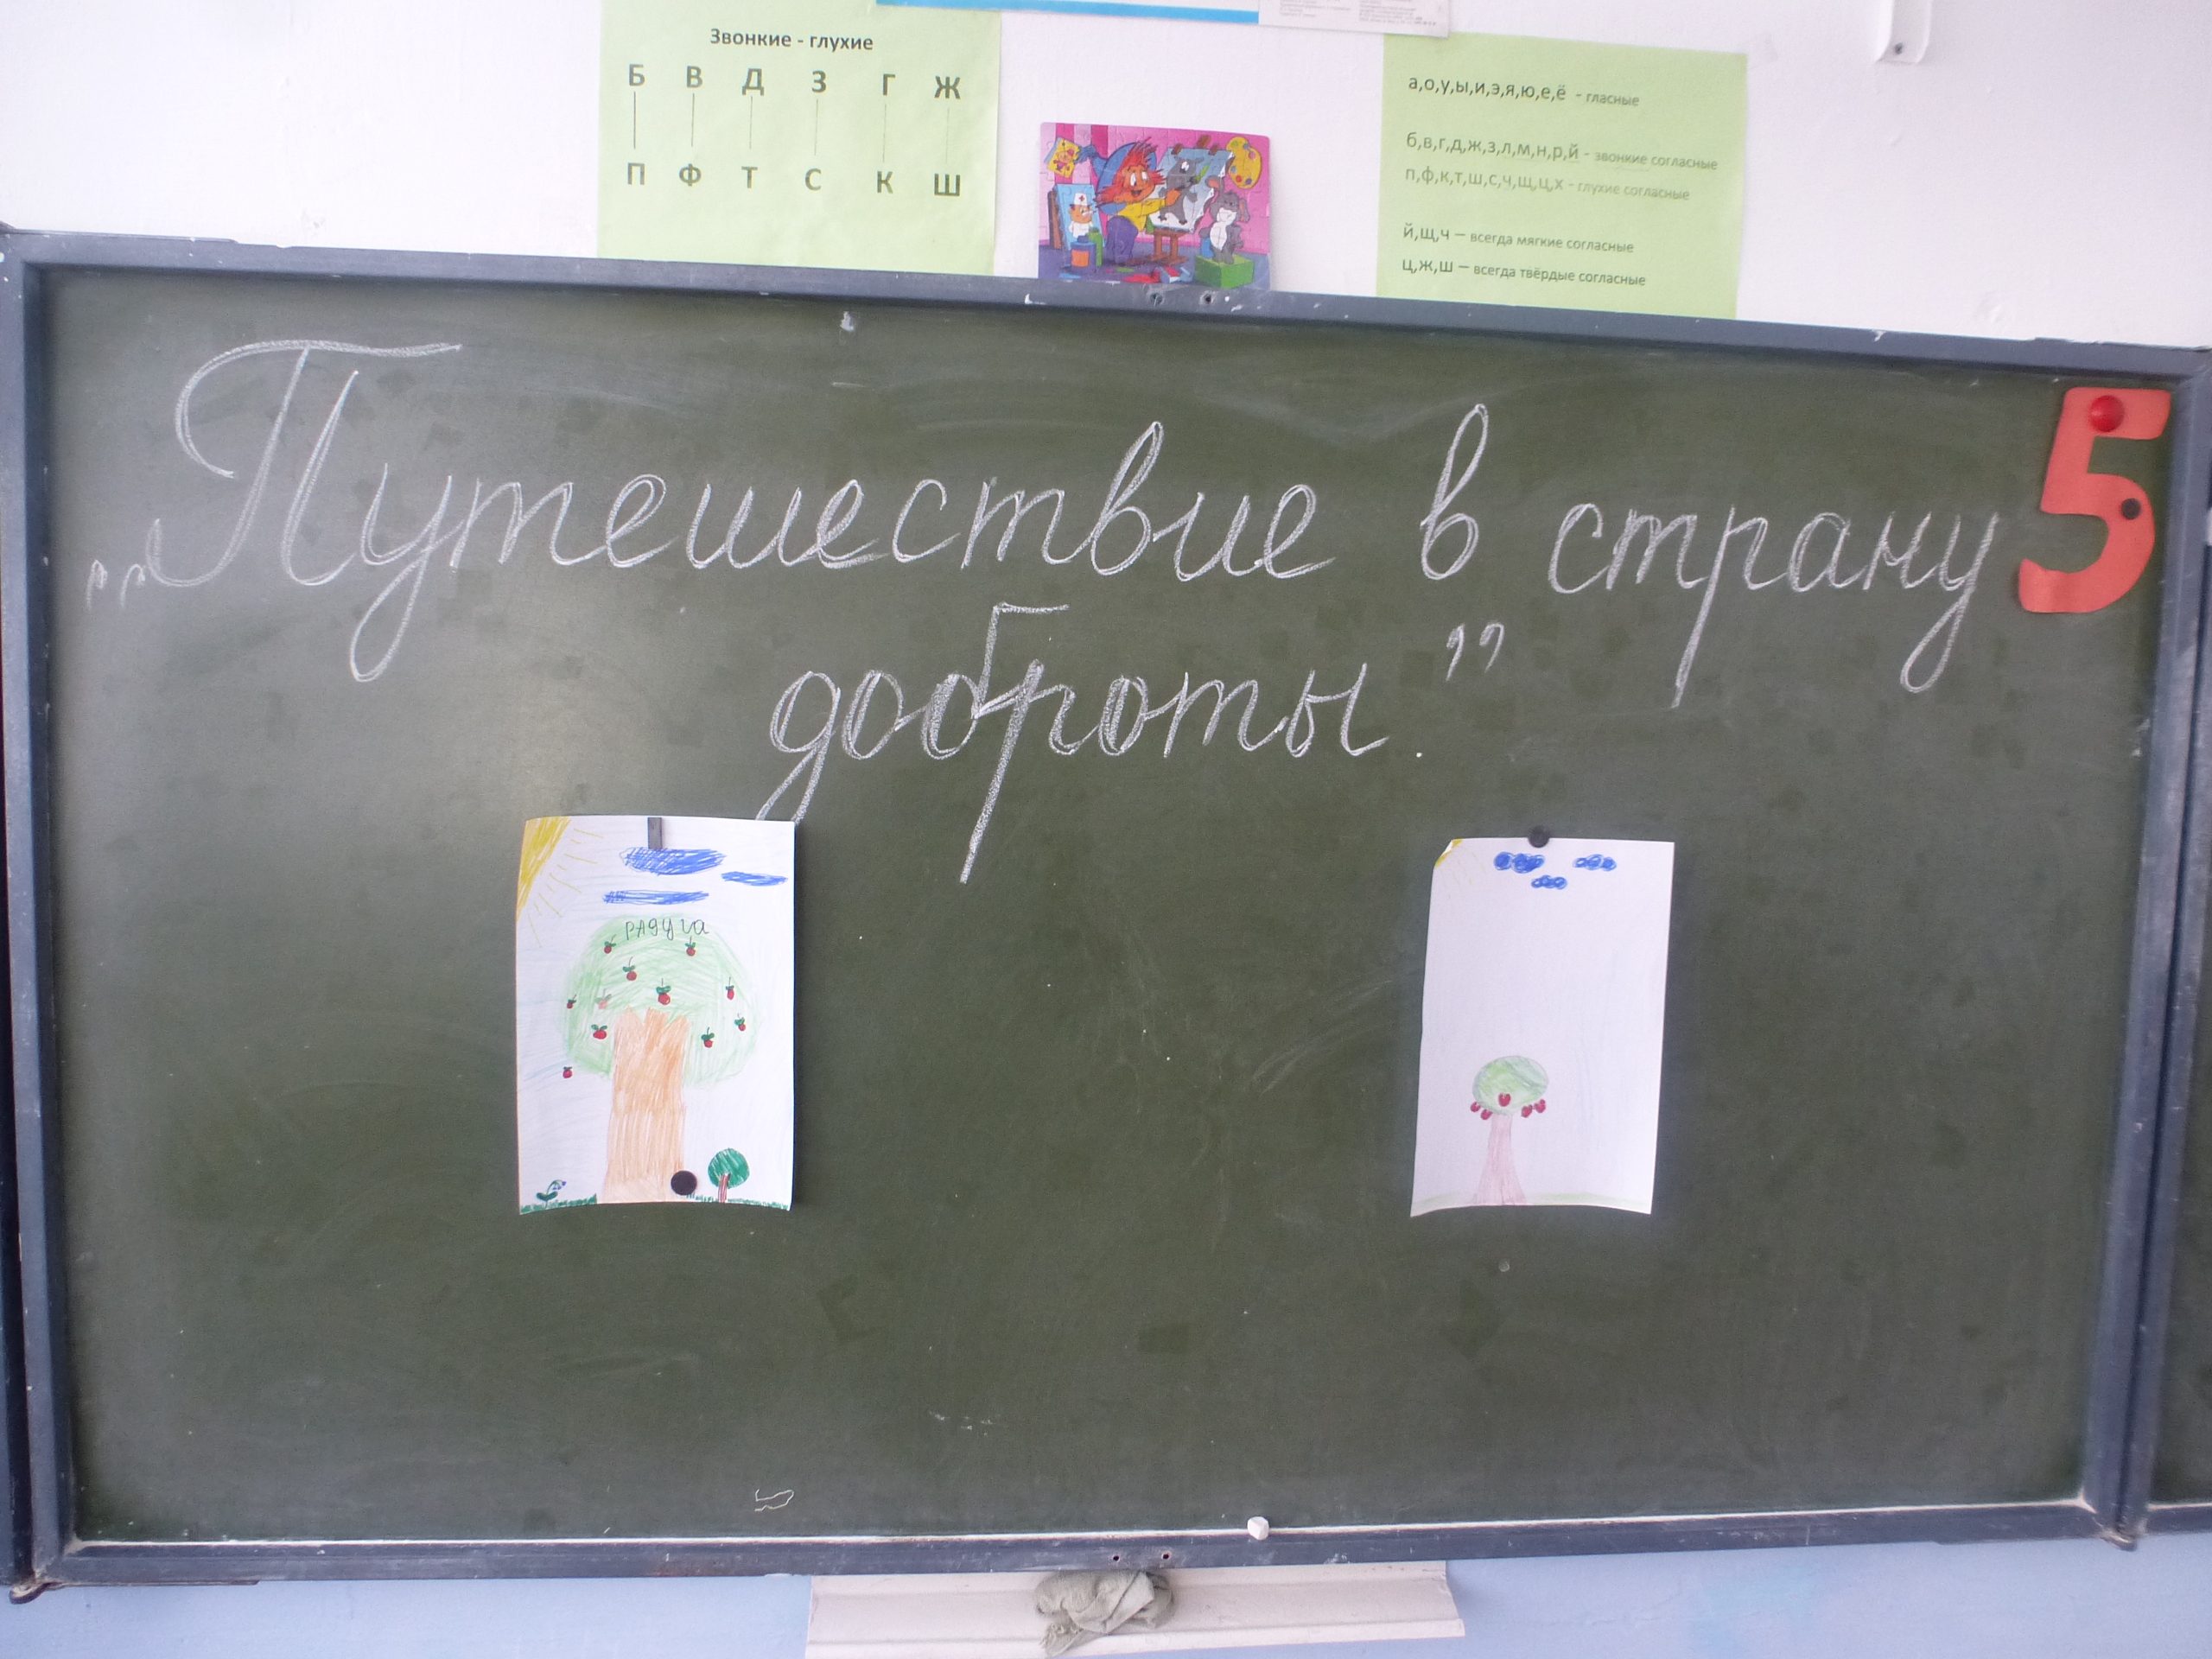 Звонкие - глухие
Б В Д З Г Ж
П Ф Т С К Ш
а,о,у,ы,и,э,я,ю,е,ё - гласные
б,в,г,д,ж,з,л,м,н,р,й - звонкие согласные
п,ф,к,т,ш,с,ч,щ,ц,х - глухие согласные
й,щ,ч – всегда мягкие согласные
ц,ж,ш – всегда твёрдые согласные
„Путешествие в страну
доброты”
5
РАДУГА